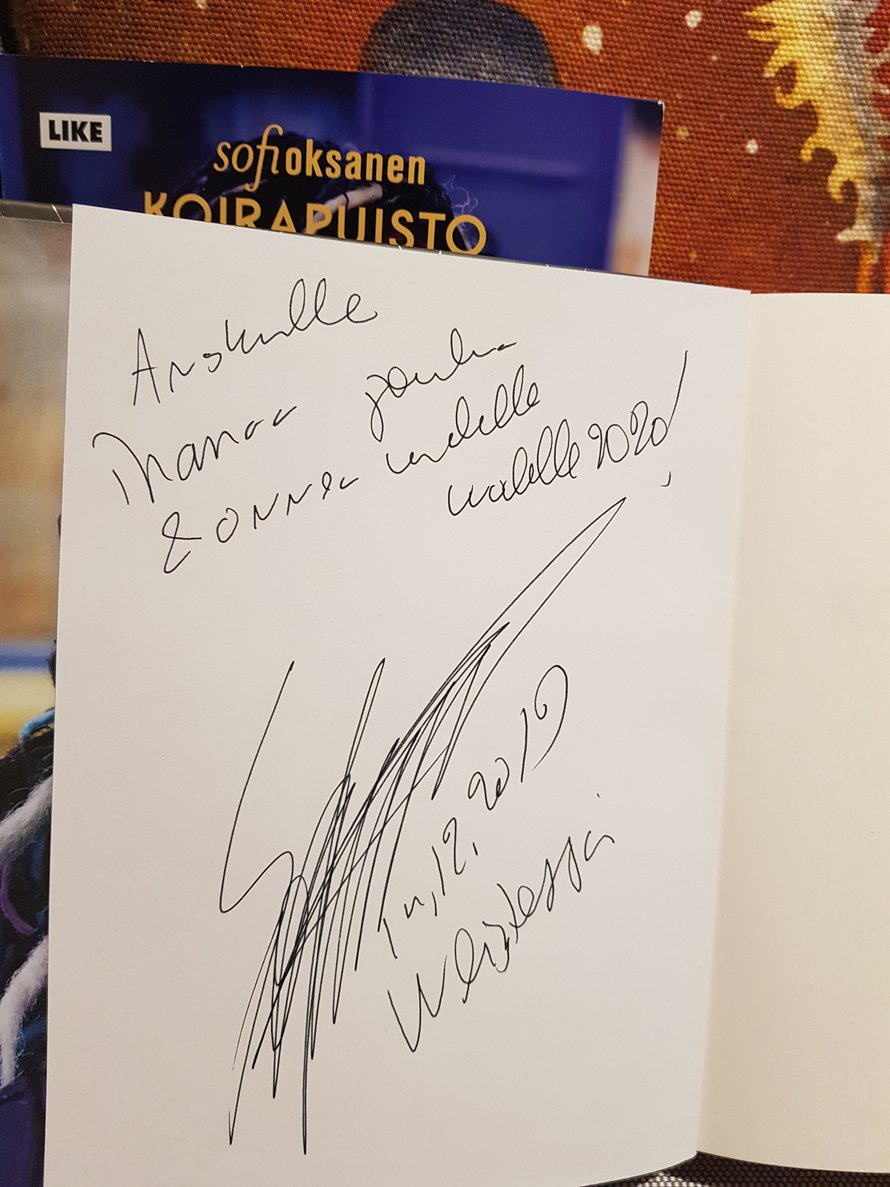 LIKE
sofi oksanen
KOIRAPUISTO
Anskulle
Ihanaa joulua
& onnea uudelle
vuodelle 2020!
12.2019